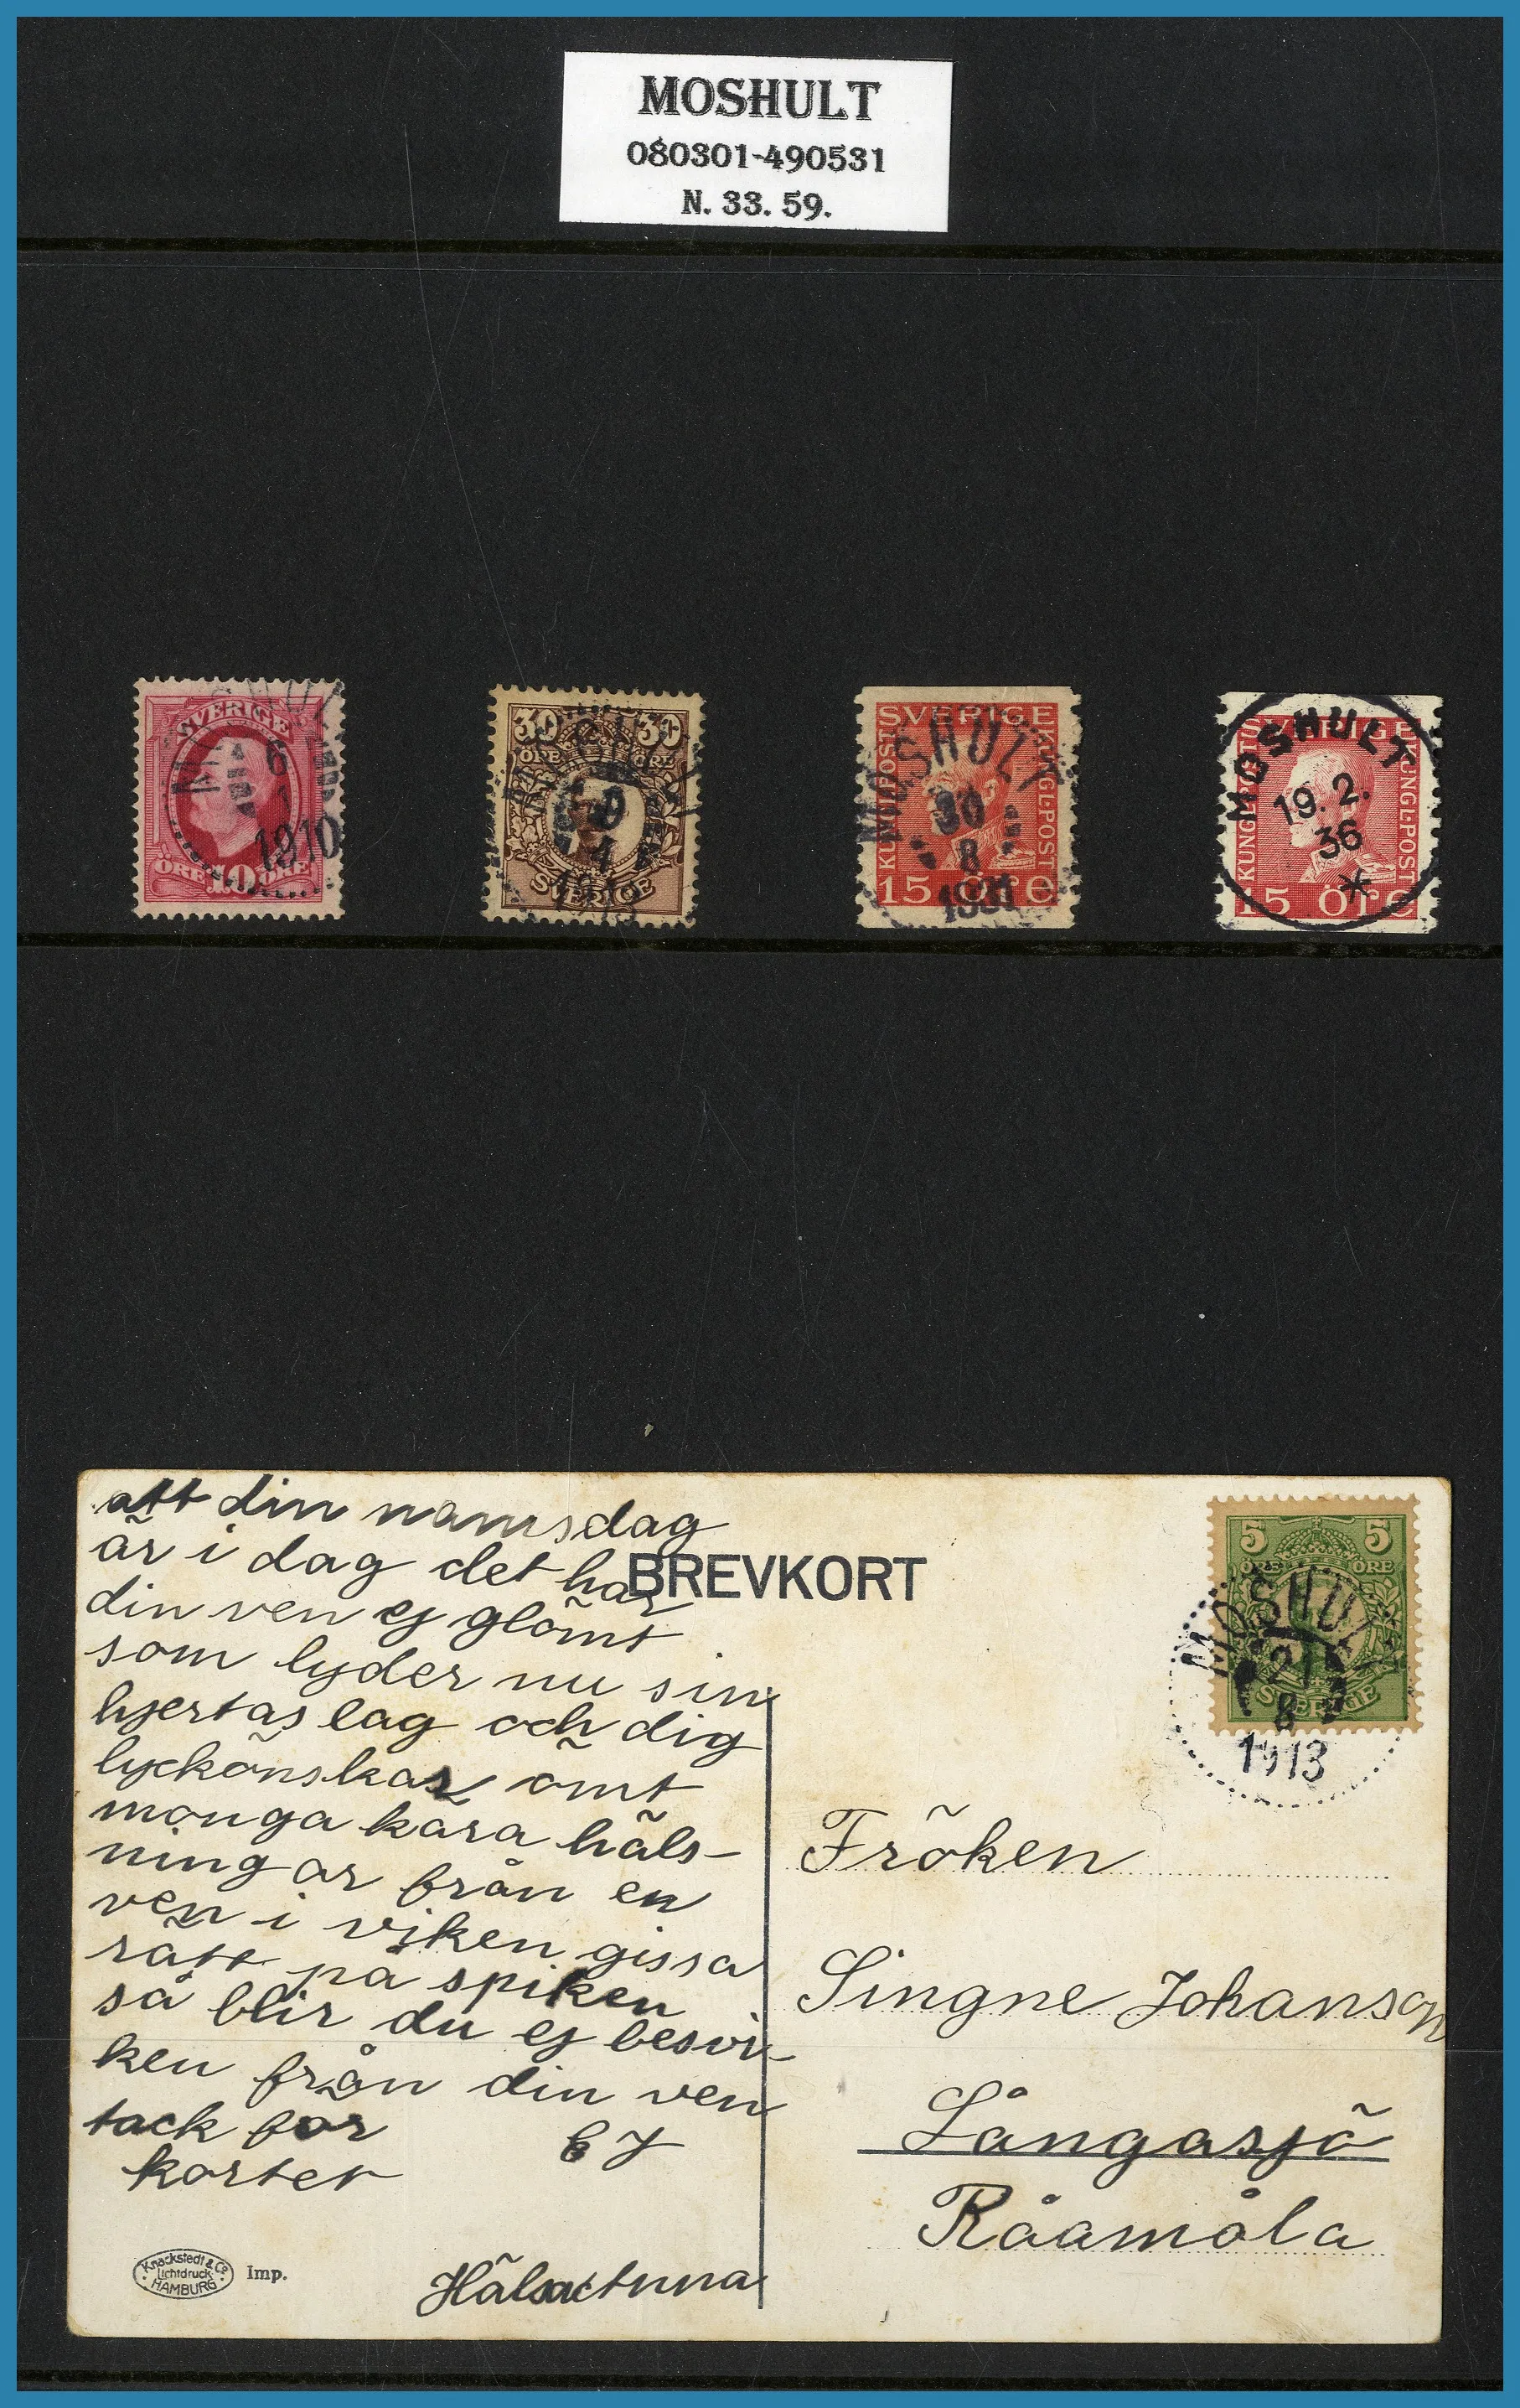 MOSHULT
080301-490531
N. 33. 59.
SVERIGE
6
1910
ÖRE 10 ÖRE
30 30
ÖRE ÖRE
SVERIGE
SVERIGE
KUNGL·POST
KUNGL·POST
MOSHULT
30
8
1931
15 öre
SVERIGE
KUNGL·POST
KUNGL·POST
MOSHULT
19.2.
36
15 öre
att din namsdag
är i dag det har
din ven ej glömt
som lyder nu sin
hjertas lag och dig
lyckönskar ömt
monga kära häls-
ningar från en
ven i viken gissa
rätt på spiken
så blir du ej besvi-
ken från din ven
tack for
kortet
E J
Knackstedt & Co
Lichtdruck
HAMBURG
Imp.
BREVKORT
5 5
ÖRE ÖRE
SVERIGE
MOSHULT
21
8
1913
Fröken
Singne Johanson
Långasjö
Råamåla